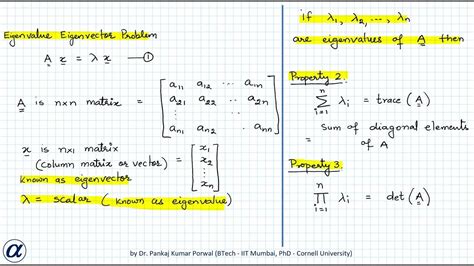 Eigenvalue Eigenvector Problem
A x = λ x — ①
A is n×n matrix = [ a11 a12 --- a1n
a21 a22 --- a2n
⋮
an1 an2 --- ann ]
x is n×1 matrix
(column matrix or vector) = [ x1
x2
⋮
xn ]
known as eigenvector
λ = scalar ( known as eigenvalue)
if λ1, λ2, ---, λn
are eigenvalues of A then
Property 2.
n
∑ λi = trace (A)
i=1
= Sum of diagonal elements
of A
Property 3.
n
∏ λi = det(A)
i=1
α
by Dr. Pankaj Kumar Porwal (BTech - IIT Mumbai, PhD - Cornell University)